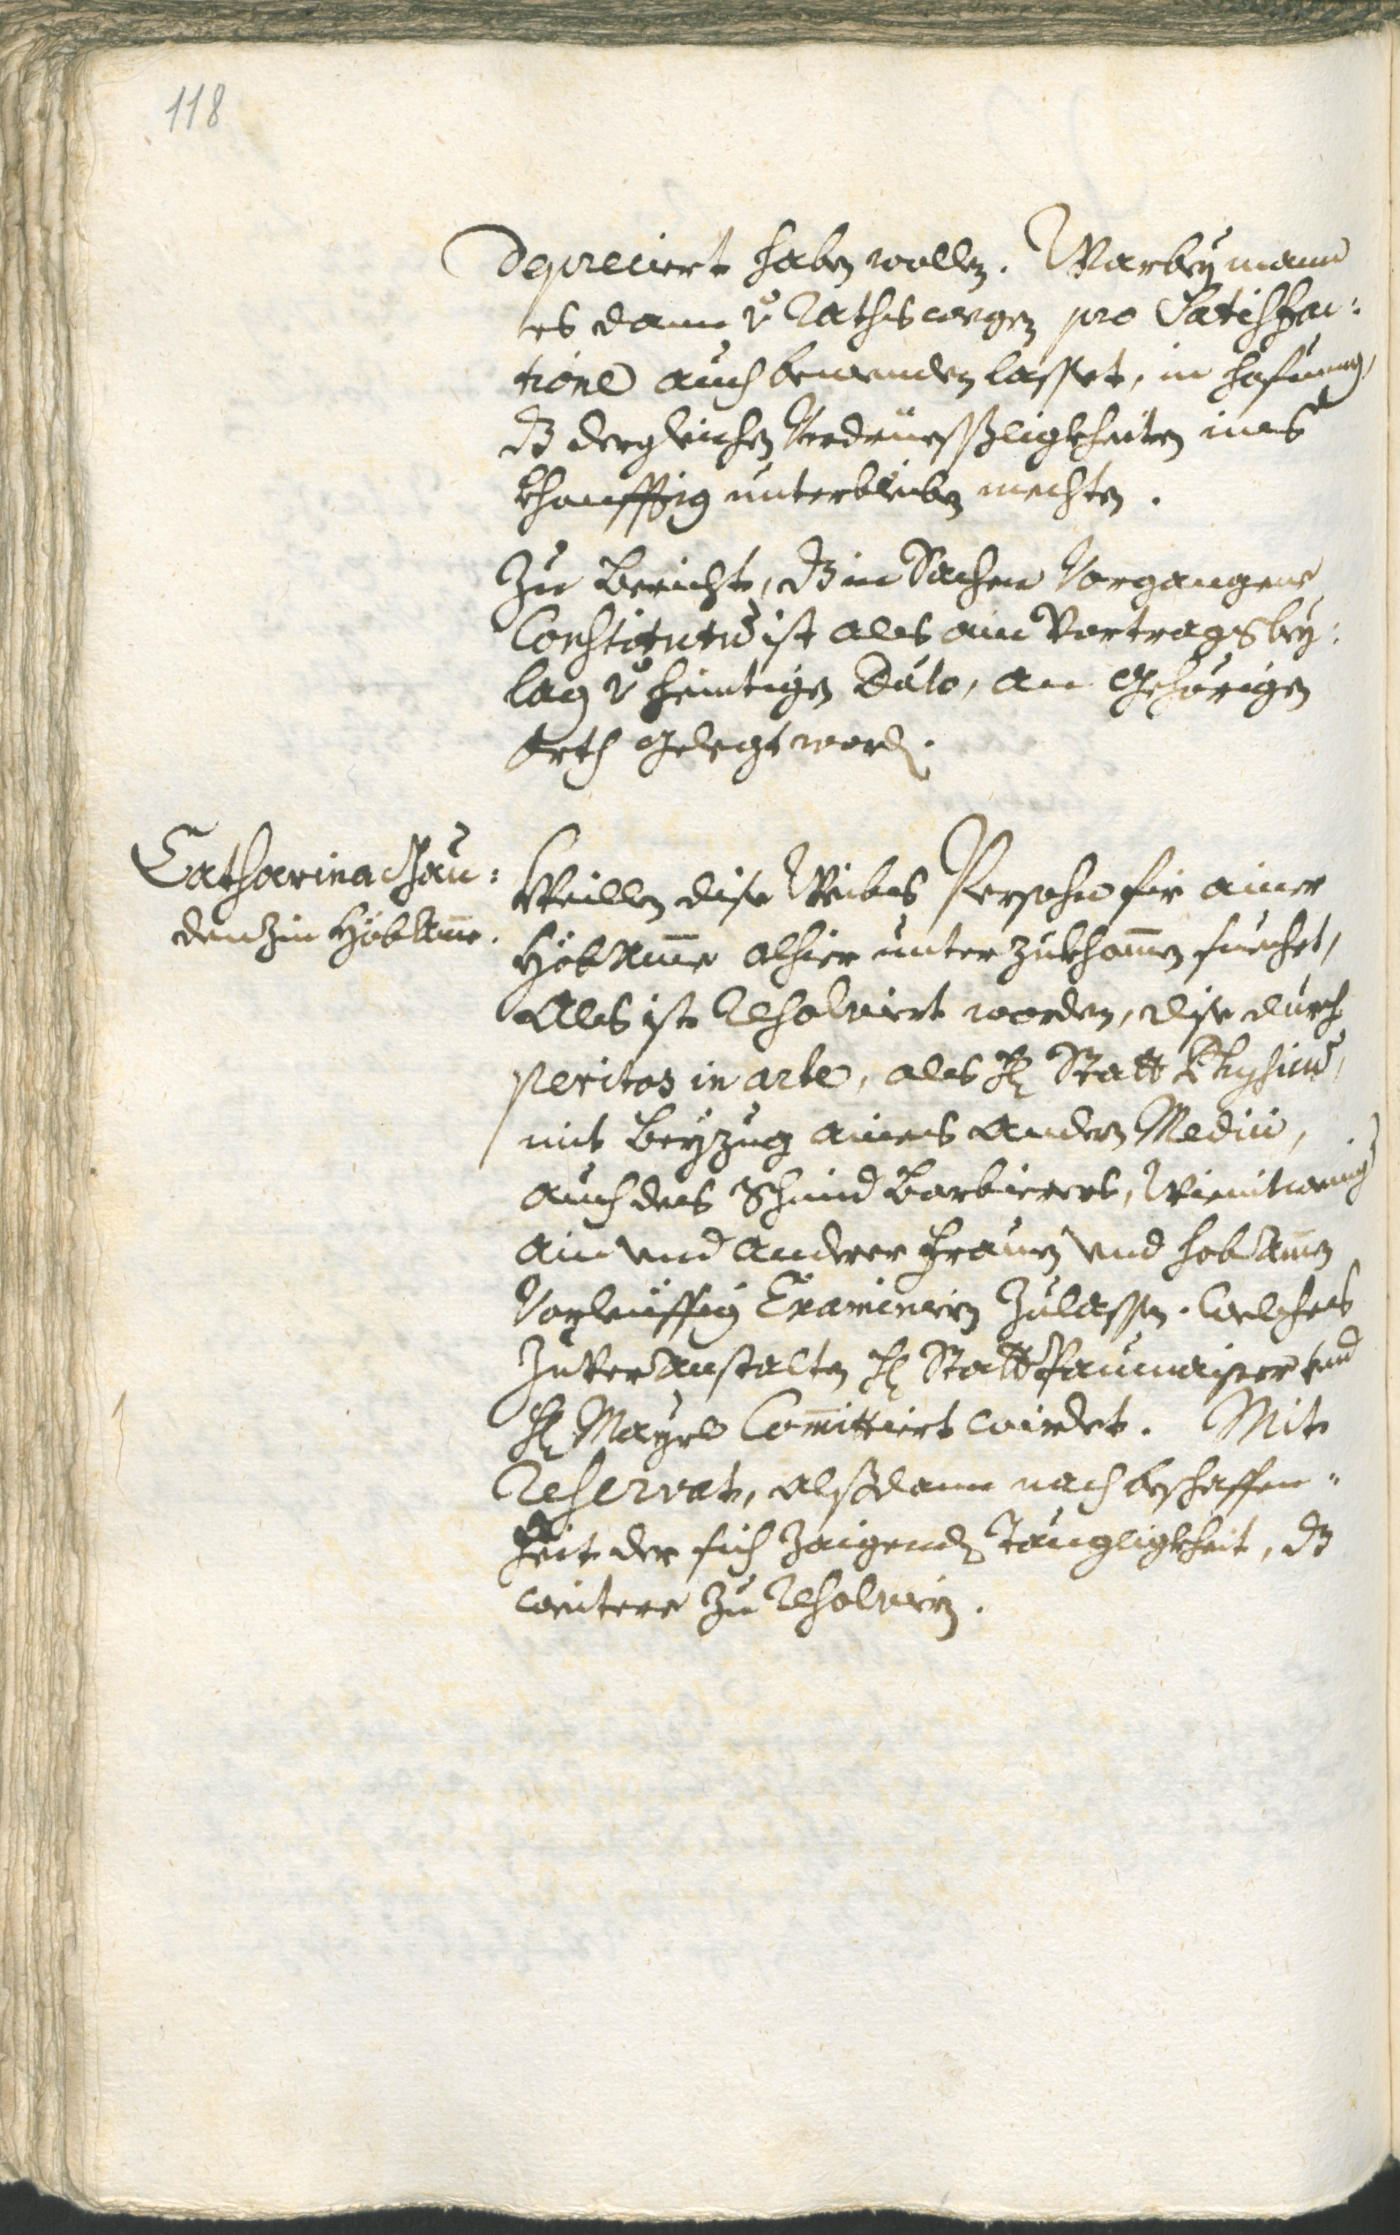 118
depreciert haben wollen. Warbey mann
es dann v̈ Raths wegen pro Satisfac:
tione auch bewenden lasset, in hofnung,
dz dergleichen Verdrüesßligkheiten ins
khonfftig unterbleiben mechten.
Zu bericht, dz in Sachen Vorgangene
Constitutu ist als ain Vortragsbey:
lag v̈ heintigen Dato, an gehörigen
Orth gelegt word.
Catharina
denzin Höb Ame.
Weillen dise Weibs Persohn fir ainer
Höb Ame alhier unter zukhommen suechet,
Als ist Resolviert worden, dise durch
peritos in arte, als H Statt Phÿsicu,
mit beyzug aines andern Medici,
auch des Schmid Barbierers, Wienitwenig
ain und anderer Frauen und hob Amen
Vorleüffig Examiniern Zulassen. Welches
Zuveranstalten H Statt Paumaister und
H Mayrl Comittiert wirdet. Mit
Reservat, alßdann nach beschaffen=
heit der sich Zaigend Tauglighheit, dz
weitere zu Resolviern.